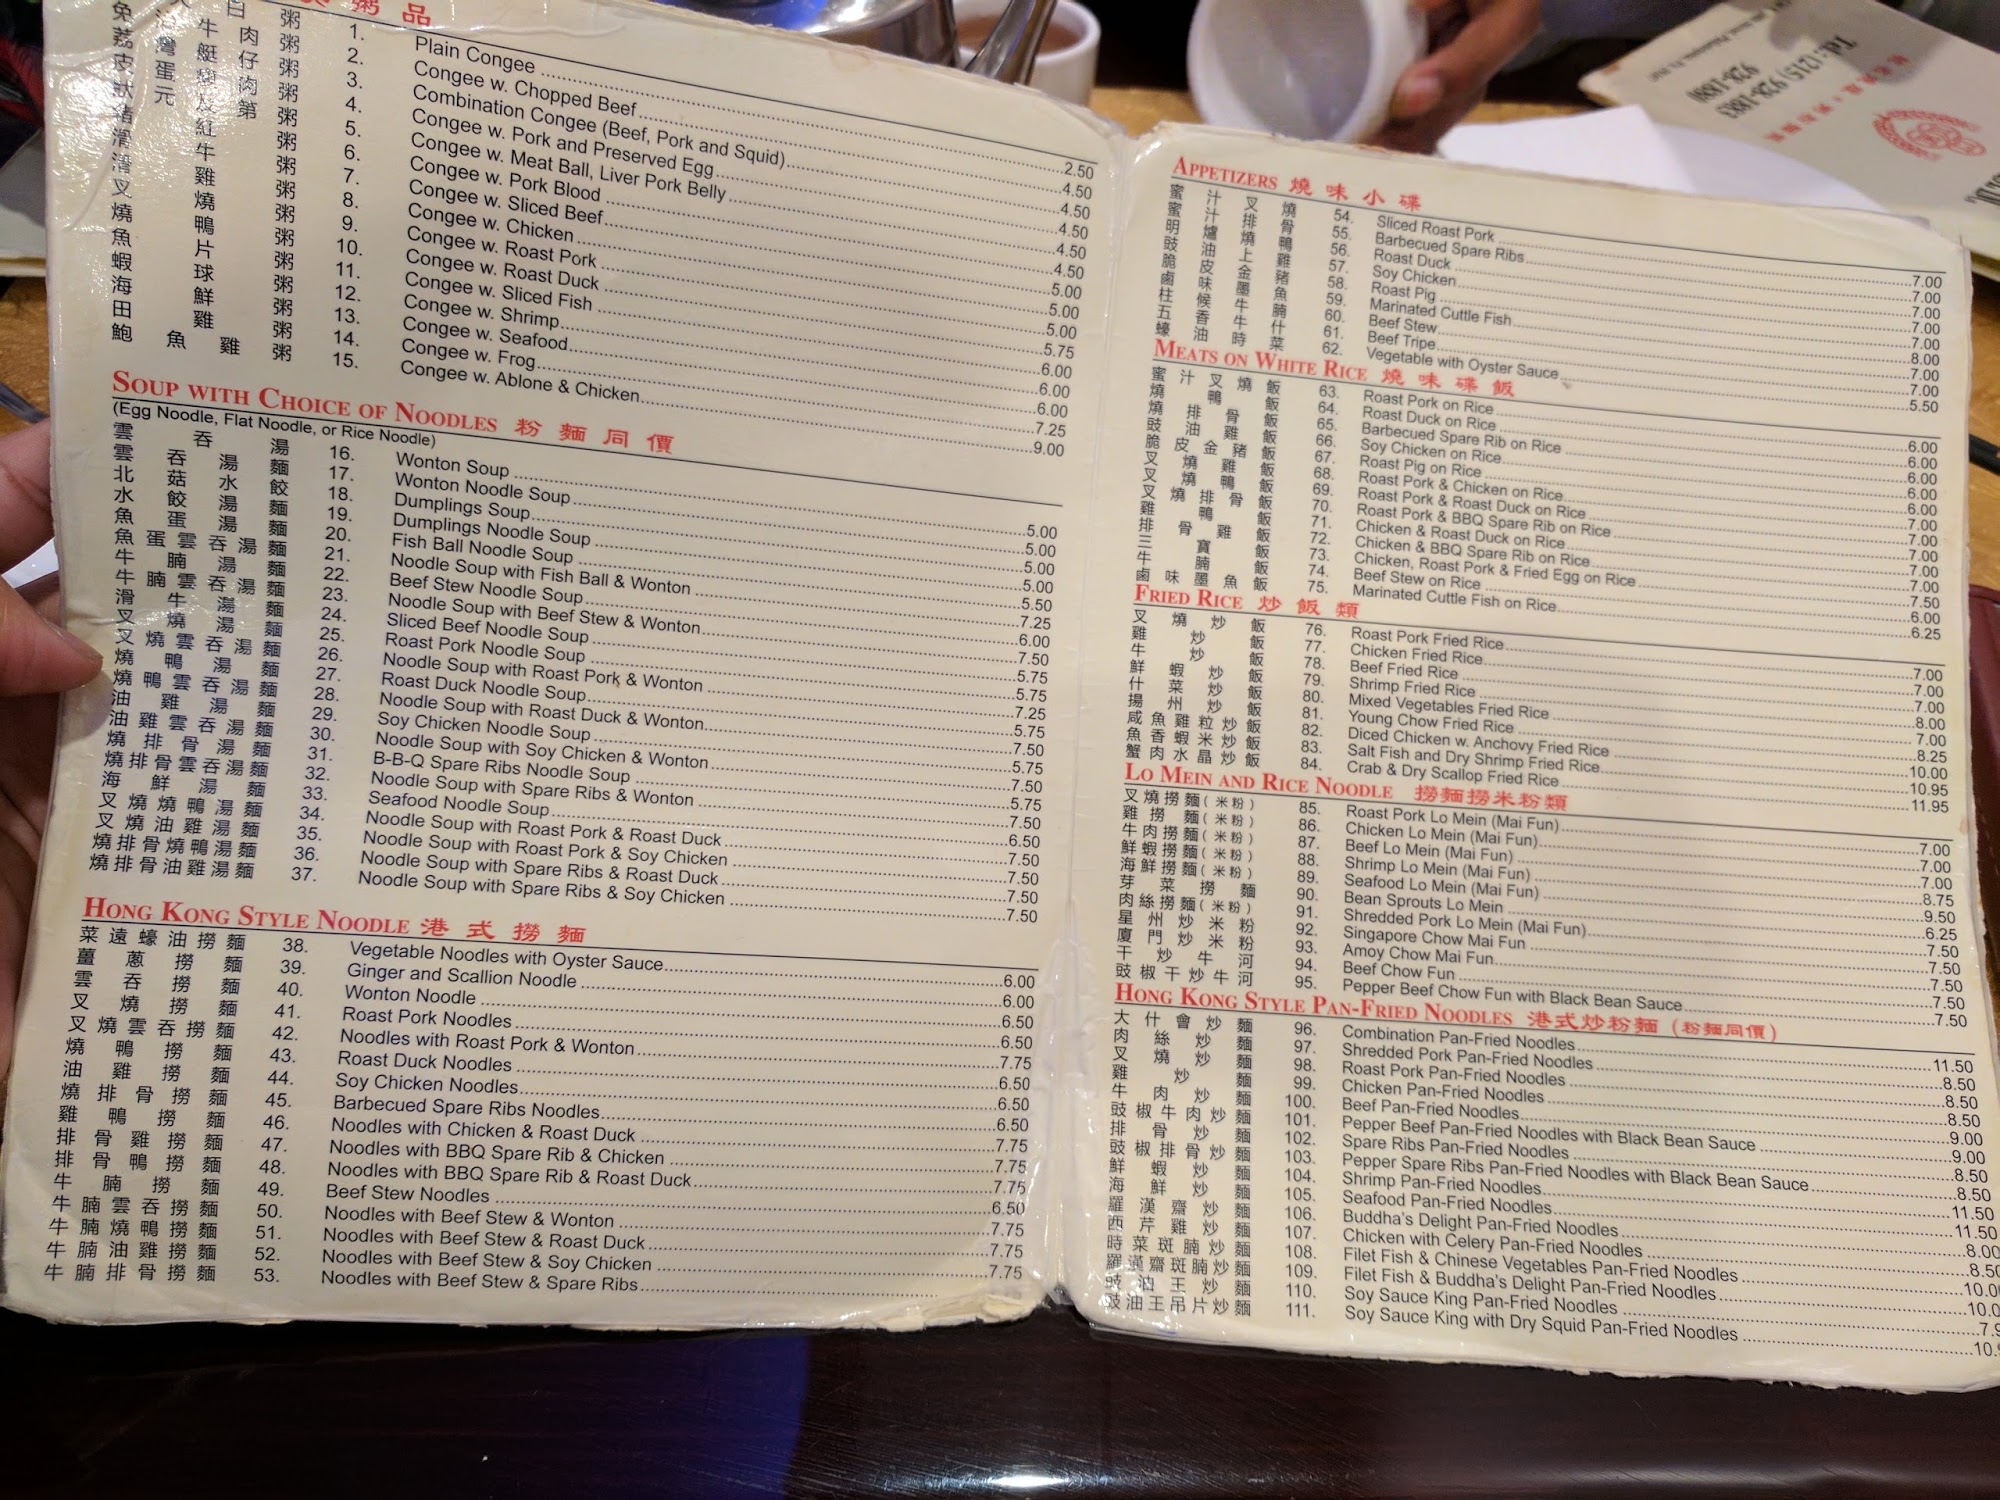 粥品
白 粥 1. Plain Congee 2.50
免 牛 肉 粥 2. Congee w. Chopped Beef 4.50
荔 灣 艇 仔 粥 3. Combination Congee (Beef, Pork and Squid) 4.50
皮 蛋 瘦 肉 粥 4. Congee w. Pork and Preserved Egg 4.50
狀 元 及 第 粥 5. Congee w. Meat Ball, Liver Pork Belly 4.50
豬 紅 粥 6. Congee w. Pork Blood 4.50
滑 牛 粥 7. Congee w. Sliced Beef 5.00
滑 雞 粥 8. Congee w. Chicken 5.00
叉 燒 粥 9. Congee w. Roast Pork 5.00
燒 鴨 粥 10. Congee w. Roast Duck 5.75
魚 片 粥 11. Congee w. Sliced Fish 6.00
蝦 球 粥 12. Congee w. Shrimp 6.00
海 鮮 粥 13. Congee w. Seafood 6.00
田 雞 粥 14. Congee w. Frog 7.25
鮑 魚 雞 粥 15. Congee w. Ablone & Chicken 9.00
SOUP WITH CHOICE OF NOODLES 粉麵同價
(Egg Noodle, Flat Noodle, or Rice Noodle)
雲 吞 湯 16. Wonton Soup 5.00
雲 吞 湯 麵 17. Wonton Noodle Soup 5.00
北 菇 水 餃 18. Dumplings Soup 5.00
水 餃 湯 麵 19. Dumplings Noodle Soup 5.00
魚 蛋 湯 麵 20. Fish Ball Noodle Soup 5.50
魚蛋雲吞湯麵 21. Noodle Soup with Fish Ball & Wonton 7.25
牛 腩 湯 麵 22. Beef Stew Noodle Soup 6.00
牛腩雲吞湯麵 23. Noodle Soup with Beef Stew & Wonton 7.50
滑 牛 湯 麵 24. Sliced Beef Noodle Soup 5.75
叉 燒 湯 麵 25. Roast Pork Noodle Soup 5.75
叉燒雲吞湯麵 26. Noodle Soup with Roast Pork & Wonton 7.25
燒 鴨 湯 麵 27. Roast Duck Noodle Soup 5.75
燒鴨雲吞湯麵 28. Noodle Soup with Roast Duck & Wonton 7.50
油 雞 湯 麵 29. Soy Chicken Noodle Soup 5.75
油雞雲吞湯麵 30. Noodle Soup with Soy Chicken & Wonton 7.50
燒 排 骨 湯 麵 31. B-B-Q Spare Ribs Noodle Soup 5.75
燒排骨雲吞湯麵 32. Noodle Soup with Spare Ribs & Wonton 7.50
海 鮮 湯 麵 33. Seafood Noodle Soup 6.50
叉燒燒鴨湯麵 34. Noodle Soup with Roast Pork & Roast Duck 7.50
叉燒油雞湯麵 35. Noodle Soup with Roast Pork & Soy Chicken 7.50
燒排骨燒鴨湯麵 36. Noodle Soup with Spare Ribs & Roast Duck 7.50
燒排骨油雞湯麵 37. Noodle Soup with Spare Ribs & Soy Chicken 7.50
HONG KONG STYLE NOODLE 港式撈麵
菜遠蠔油撈麵 38. Vegetable Noodles with Oyster Sauce 6.00
薑 蔥 撈 麵 39. Ginger and Scallion Noodle 6.00
雲 吞 撈 麵 40. Wonton Noodle 6.50
叉 燒 撈 麵 41. Roast Pork Noodles 6.50
叉燒雲吞撈麵 42. Noodles with Roast Pork & Wonton 7.75
燒 鴨 撈 麵 43. Roast Duck Noodles 6.50
油 雞 撈 麵 44. Soy Chicken Noodles 6.50
燒 排 骨 撈 麵 45. Barbecued Spare Ribs Noodles 6.50
雞 鴨 撈 麵 46. Noodles with Chicken & Roast Duck 7.75
排 骨 雞 撈 麵 47. Noodles with BBQ Spare Rib & Chicken 7.75
排 骨 鴨 撈 麵 48. Noodles with BBQ Spare Rib & Roast Duck 7.75
牛 腩 撈 麵 49. Beef Stew Noodles 6.50
牛腩雲吞撈麵 50. Noodles with Beef Stew & Wonton 7.75
牛腩燒鴨撈麵 51. Noodles with Beef Stew & Roast Duck 7.75
牛腩油雞撈麵 52. Noodles with Beef Stew & Soy Chicken 7.75
牛腩排骨撈麵 53. Noodles with Beef Stew & Spare Ribs
Tel: (215) 928-1883
928-1880
APPETIZERS 燒味小碟
蜜 汁 叉 燒 54. Sliced Roast Pork 7.00
蜜 汁 排 骨 55. Barbecued Spare Ribs 7.00
明 爐 燒 鴨 56. Roast Duck 7.00
豉 油 上 雞 57. Soy Chicken 7.00
脆 皮 金 豬 58. Roast Pig 7.00
鹵 味 墨 魚 59. Marinated Cuttle Fish 8.00
柱 候 牛 腩 60. Beef Stew 7.00
五 香 牛 什 61. Beef Tripe 7.00
蠔 油 時 菜 62. Vegetable with Oyster Sauce 5.50
MEATS ON WHITE RICE 燒味碟飯
蜜 汁 叉 燒 飯 63. Roast Pork on Rice 6.00
燒 鴨 飯 64. Roast Duck on Rice 6.00
燒 排 骨 飯 65. Barbecued Spare Rib on Rice 6.00
豉 油 雞 飯 66. Soy Chicken on Rice 6.00
脆 皮 金 豬 飯 67. Roast Pig on Rice 6.00
叉 燒 雞 飯 68. Roast Pork & Chicken on Rice 7.00
叉 燒 鴨 飯 69. Roast Pork & Roast Duck on Rice 7.00
叉 燒 排 骨 飯 70. Roast Pork & BBQ Spare Rib on Rice 7.00
雞 鴨 飯 71. Chicken & Roast Duck on Rice 7.00
排 骨 雞 飯 72. Chicken & BBQ Spare Rib on Rice 7.00
三 寶 飯 73. Chicken, Roast Pork & Fried Egg on Rice 7.50
牛 腩 飯 74. Beef Stew on Rice 6.00
鹵 味 墨 魚 飯 75. Marinated Cuttle Fish on Rice 6.25
FRIED RICE 炒飯類
叉 燒 炒 飯 76. Roast Pork Fried Rice 7.00
雞 炒 飯 77. Chicken Fried Rice 7.00
牛 炒 飯 78. Beef Fried Rice 7.00
鮮 蝦 炒 飯 79. Shrimp Fried Rice 8.00
什 菜 炒 飯 80. Mixed Vegetables Fried Rice 7.00
揚 州 炒 飯 81. Young Chow Fried Rice 8.25
咸魚雞粒炒飯 82. Diced Chicken w. Anchovy Fried Rice 10.00
魚香蝦米炒飯 83. Salt Fish and Dry Shrimp Fried Rice 10.95
蟹肉水晶炒飯 84. Crab & Dry Scallop Fried Rice 11.95
LO MEIN AND RICE NOODLE 撈麵撈米粉類
叉燒撈麵(米粉) 85. Roast Pork Lo Mein (Mai Fun) 7.00
雞撈麵(米粉) 86. Chicken Lo Mein (Mai Fun) 7.00
牛肉撈麵(米粉) 87. Beef Lo Mein (Mai Fun) 7.00
鮮蝦撈麵(米粉) 88. Shrimp Lo Mein (Mai Fun) 8.75
海鮮撈麵(米粉) 89. Seafood Lo Mein (Mai Fun) 9.50
芽 菜 撈 麵 90. Bean Sprouts Lo Mein 6.25
肉絲撈麵(米粉) 91. Shredded Pork Lo Mein (Mai Fun) 7.50
星 州 炒 米 粉 92. Singapore Chow Mai Fun 7.50
廈 門 炒 米 粉 93. Amoy Chow Mai Fun 7.50
干 炒 牛 河 94. Beef Chow Fun 7.50
豉椒干炒牛河 95. Pepper Beef Chow Fun with Black Bean Sauce 7.50
HONG KONG STYLE PAN-FRIED NOODLES 港式炒粉麵 (粉麵同價)
大 什 會 炒 麵 96. Combination Pan-Fried Noodles 11.50
肉 絲 炒 麵 97. Shredded Pork Pan-Fried Noodles 8.50
叉 燒 炒 麵 98. Roast Pork Pan-Fried Noodles 8.50
雞 炒 麵 99. Chicken Pan-Fried Noodles 8.50
牛 肉 炒 麵 100. Beef Pan-Fried Noodles 9.00
豉椒牛肉炒麵 101. Pepper Beef Pan-Fried Noodles with Black Bean Sauce 9.00
排 骨 炒 麵 102. Spare Ribs Pan-Fried Noodles 8.50
豉椒排骨炒麵 103. Pepper Spare Ribs Pan-Fried Noodles with Black Bean Sauce 8.50
鮮 蝦 炒 麵 104. Shrimp Pan-Fried Noodles 11.50
海 鮮 炒 麵 105. Seafood Pan-Fried Noodles 11.50
羅 漢 齋 炒 麵 106. Buddha's Delight Pan-Fried Noodles 8.00
西 芹 雞 炒 麵 107. Chicken with Celery Pan-Fried Noodles 8.50
時菜斑腩炒麵 108. Filet Fish & Chinese Vegetables Pan-Fried Noodles 10.0
羅漢齋斑腩炒麵 109. Filet Fish & Buddha's Delight Pan-Fried Noodles 10.0
豉 油 王 炒 麵 110. Soy Sauce King Pan-Fried Noodles 7.9
豉油王吊片炒麵 111. Soy Sauce King with Dry Squid Pan-Fried Noodles 10.